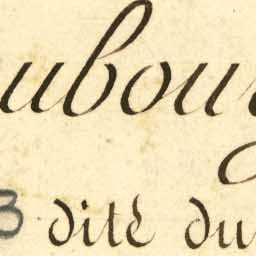 ubour
3 dite du